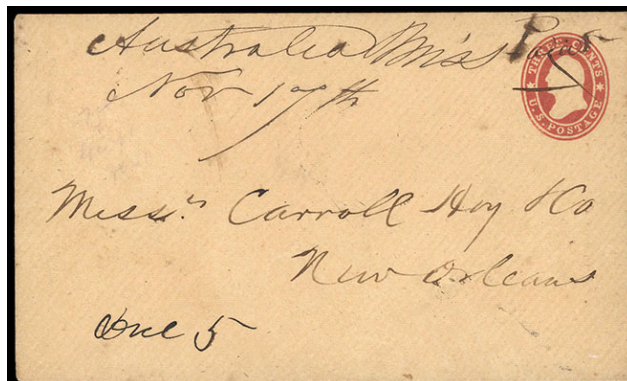 Australia Miss Paid 5
Nov 17th
THREE CENTS
U.S. POSTAGE
Messrs. Carroll Hoy & Co
New Orleans
Due 5